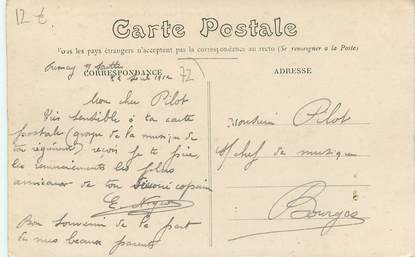 12 €
Carte Postale
Tous les pays étrangers n'acceptent pas la correspondance au recto (Se renseigner à la Poste)
CORRESPONDANCE
ADRESSE
72
1912
Mon cher Pilot
Très sensible à ta carte
postale (groupe de la musique de
ton régiment) reçois je te prie,
les remerciements les plus
amicaux de ton copain
E.
Bon souvenir de la part
de mes beaux parents
Monsieur Pilot
s/chef de musique
Bourges